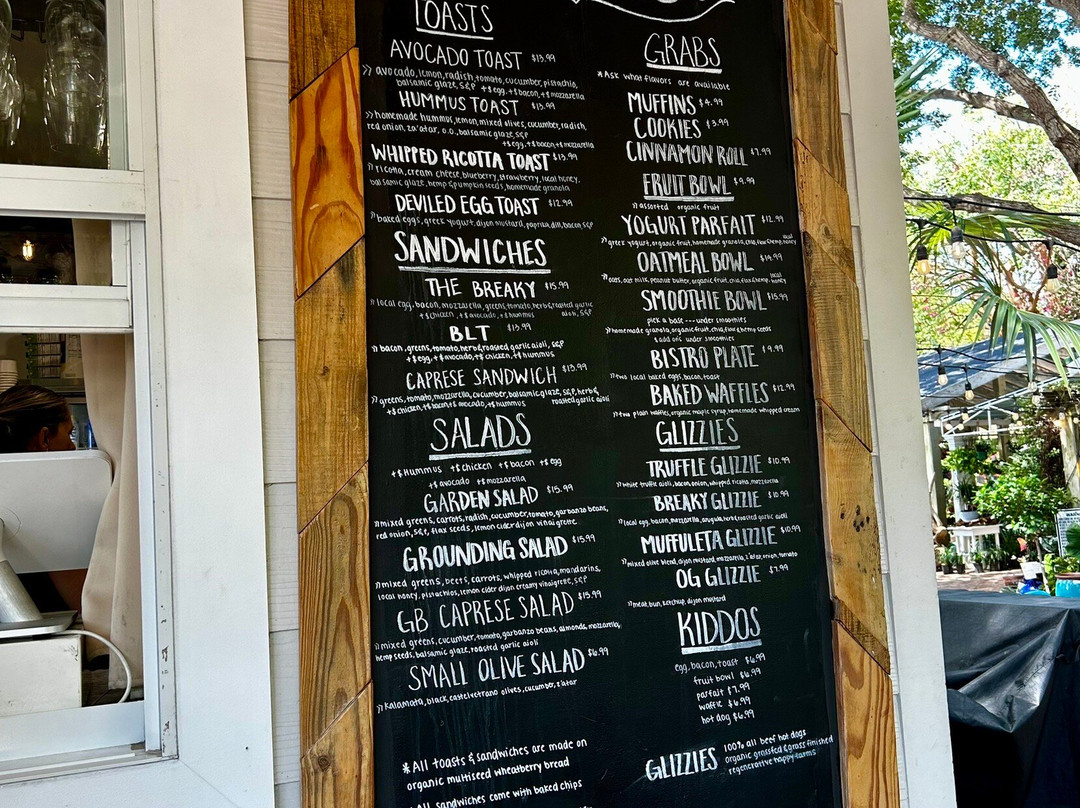 TOASTS
AVOCADO TOAST $13.99
» avocado, lemon, radish, tomato, cucumber, pistachio,
balsamic glaze, S&P +$egg, +$bacon, +$mozzarella
HUMMUS TOAST $13.99
» homemade hummus, lemon, mixed olives, cucumber, radish,
red onion, za'atar, o.o., balsamic glaze, S&P
+$egg, +$bacon, +$mozzarella
WHIPPED RICOTTA TOAST $13.99
» ricotta, cream cheese, blueberry, strawberry, local honey,
balsamic glaze, hemp & pumpkin seeds, homemade granola
DEVILED EGG TOAST $12.99
» baked eggs, greek yogurt, dijon mustard, paprika, dill, bacon, S&P
SANDWICHES
THE BREAKY $15.99
» local egg, bacon, mozzarella, greens, tomato, herb & roasted garlic
aioli, S&P
+$chicken, +$avocado, +$hummus
BLT $13.99
» bacon, greens, tomato, herb & roasted garlic aioli, S&P
+$egg, +$avocado, +$chicken, +$hummus
CAPRESE SANDWICH $13.99
» greens, tomato, mozzarella, cucumber, balsamic glaze, S&P, herb &
roasted garlic aioli
+$chicken, +$bacon, +$avocado, +$hummus
SALADS
+$Hummus +$chicken +$bacon +$egg
+$avocado +$mozzarella
GARDEN SALAD $15.99
» mixed greens, carrots, radish, cucumber, tomato, garbanzo beans,
red onion, S&P, flax seeds, lemon cider dijon vinaigrette
GROUNDING SALAD $15.99
» mixed greens, beets, carrots, whipped ricotta, mandarins,
local honey, pistachios, lemon cider dijon creamy vinaigrette, S&P
GB CAPRESE SALAD $15.99
» mixed greens, cucumber, tomato, garbanzo beans, almonds, mozzarella,
hemp seeds, balsamic glaze, roasted garlic aioli
SMALL OLIVE SALAD $6.99
» Kalamata, black, castelvetrano olives, cucumber, z'atar
*All toasts & sandwiches are made on
organic multiseed wheatberry bread
*All sandwiches come with baked chips
GRABS
*Ask what flavors are available
MUFFINS $4.99
COOKIES $3.99
CINNAMON ROLL $7.99
FRUIT BOWL $9.99
» assorted organic fruit
YOGURT PARFAIT $12.99
» greek yogurt, organic fruit, homemade granola, chia, flax & hemp, local honey
OATMEAL BOWL $14.99
» oats, oat milk, peanut butter, organic fruit, chia, flax & hemp, local honey
SMOOTHIE BOWL $15.99
pick a base --- under smoothies
» homemade granola, organic fruit, chia, flax & hemp seeds
$ add ons under smoothies
BISTRO PLATE $9.99
» two local baked eggs, bacon, toast
BAKED WAFFLES $12.99
» two plain waffles, organic maple syrup, homemade whipped cream
GLIZZIES
TRUFFLE GLIZZIE $10.99
» white truffle aioli, bacon, onion, whipped ricotta, mozzarella
BREAKY GLIZZIE $10.99
» local egg, bacon, mozzarella, arugula, herb & roasted garlic aioli
MUFFULETA GLIZZIE $10.99
» mixed olive blend, dijon mustard, mozzarella, z'atar, onion, tomato
OG GLIZZIE $7.99
» meat, bun, ketchup, dijon mustard
KIDDOS
egg, bacon, toast $6.99
fruit bowl $6.99
parfait $7.99
waffle $6.99
hot dog $6.99
GLIZZIES 100% all beef hot dogs
organic grassfed & grass finished
regenerative happy farms